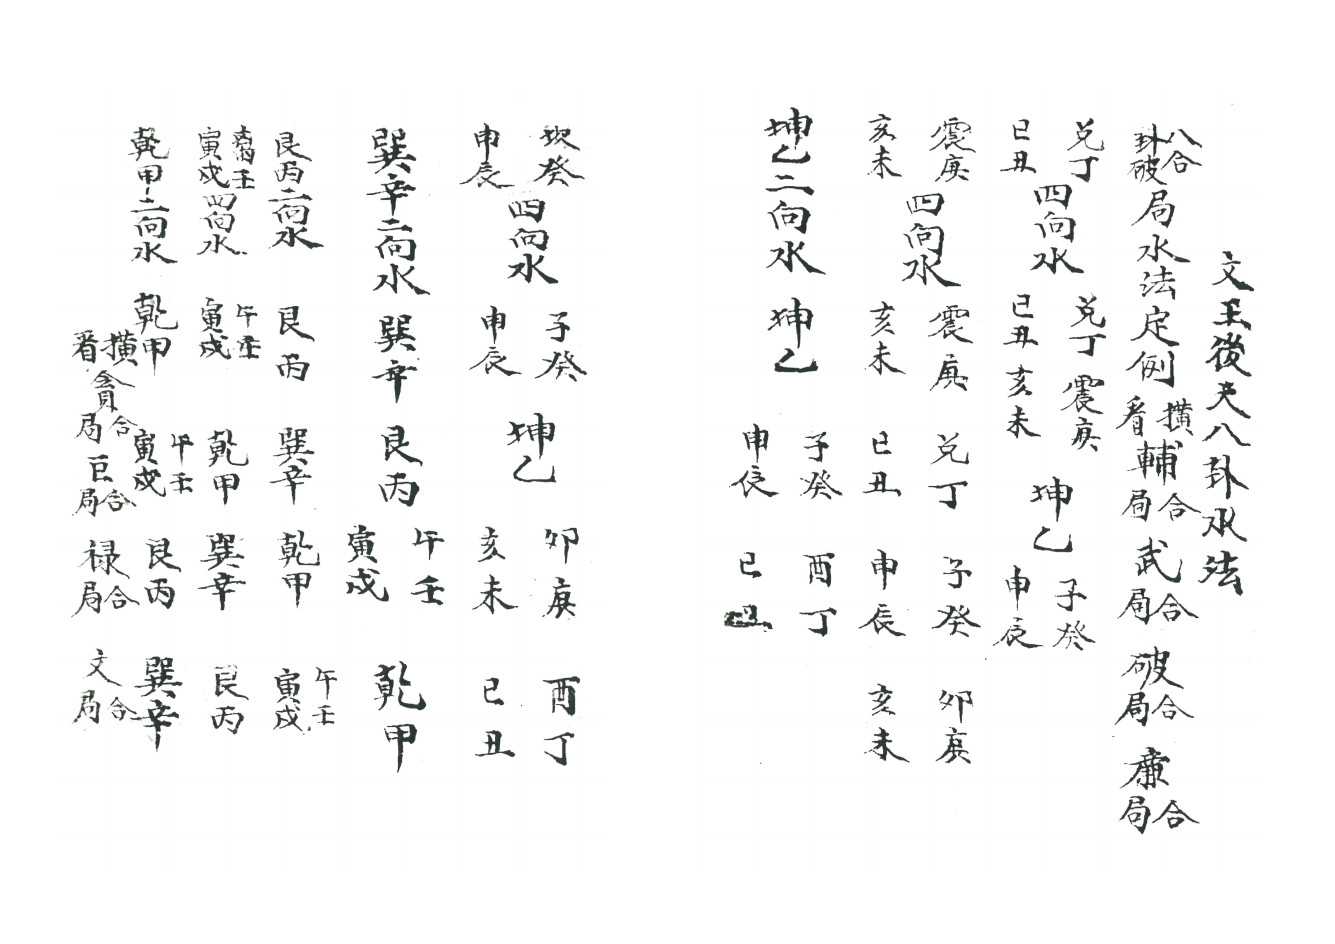 文王後天八卦水法
八卦合破局水法定例 橫看 輔合局 武合局 破合局 廉合局
兌丁巳丑四向水 兌丁巳丑 震庚亥未 坤乙 子癸申辰
震庚亥未四向水 震庚亥未 兌丁巳丑 子癸申辰 卯庚亥未
坤乙二向水 坤乙 子癸申辰 酉丁巳丑
坎癸申辰四向水 子癸申辰 坤乙 卯庚亥未 酉丁巳丑
巽辛二向水 巽辛 艮丙 午壬寅戌 乾甲
艮丙二向水 艮丙 巽辛 乾甲 午壬寅戌
離壬寅戌四向水 午壬寅戌 乾甲 巽辛 艮丙
乾甲二向水 乾甲 午壬寅戌 艮丙 巽辛
橫看 貪合局 巨合局 祿合局 文合局